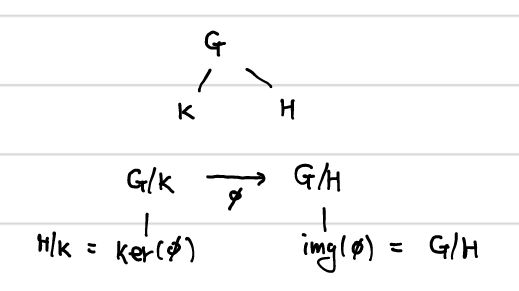 G
K H
G/K → G/H
φ
H/K = ker(φ) img(φ) = G/H